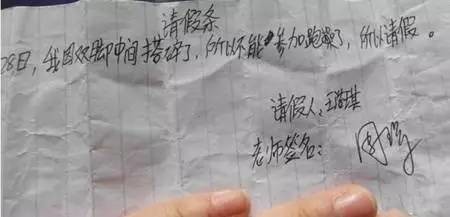 请假条
28日,我因双脚中间搭碎了,所以不能参加跑操了,所以请假。
请假人:王浩琪
老师签名: